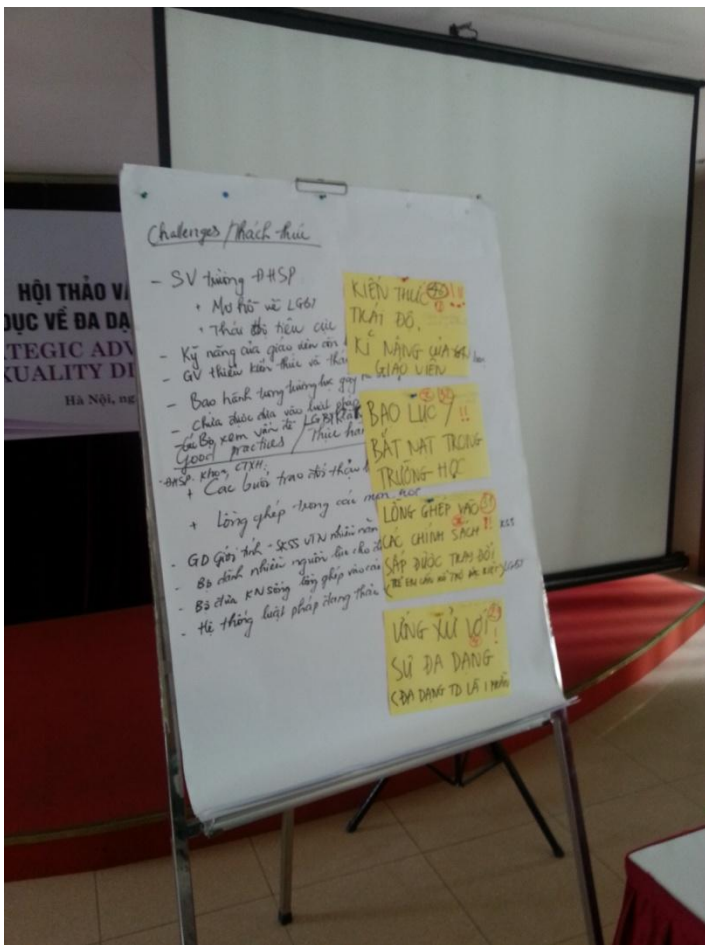 HỘI THẢO VÀ
DỤC VỀ ĐA DẠ
TEGIC ADV
XUALITY DI
Hà Nội, ng
Challenges / Thách thức
- SV trường ĐHSP
+ Mơ hồ về LGBT
+ Thái độ tiêu cực
- Kỹ năng của giáo viên còn
- GV thiếu kiến thức và thái
- Bạo hành trong trường học gây
- Chưa được đưa vào luật pháp
- Các Bộ xem vấn đề LGBT
Good practices / Thực hà
- ĐHSP. Khoa, CTXH.
+ Các buổi trao đổi thảo
+ Lồng ghép trong các môn học
- GD Giới tính - SKSS VTN nhiều năm
- Bộ dành nhiều nguồn lực cho
- Bộ đưa KN sống lồng ghép vào các
- Hệ thống luật pháp đang thảo
KIẾN THỨC !!!
THÁI ĐỘ,
KĨ NĂNG CỦA
GIÁO VIÊN
BẠO LỰC / !!
BẮT NẠT TRONG
TRƯỜNG HỌC
LỒNG GHÉP VÀO
CÁC CHÍNH SÁCH !!
SẮP ĐƯỢC THAY ĐỔI
LGBT
ỨNG XỬ VỚI !
SỰ ĐA DẠNG
(ĐA DẠNG TD LÀ 1 PHẦN